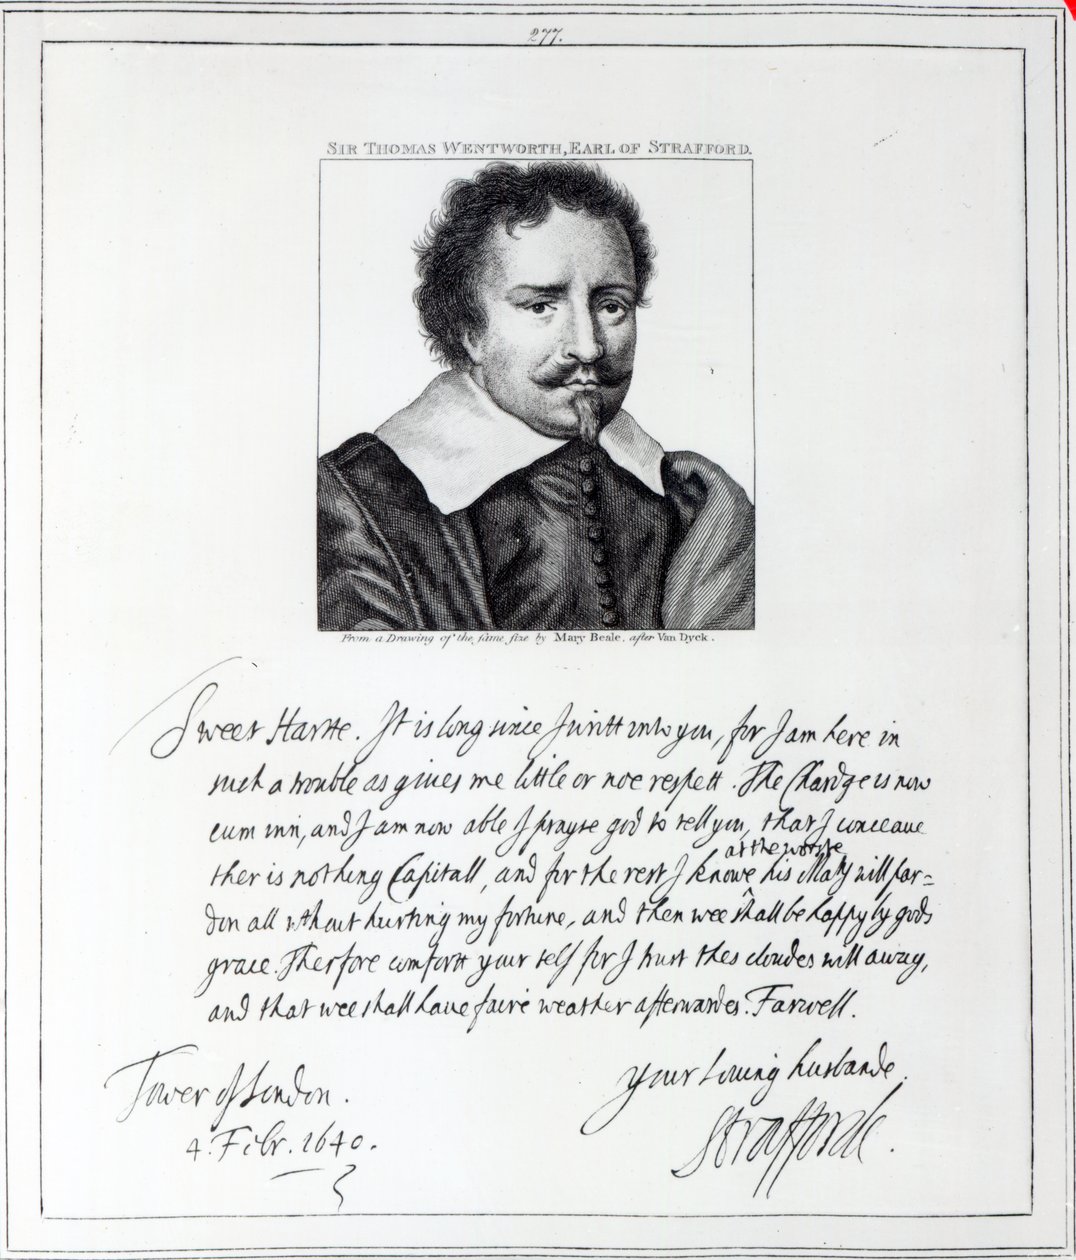 277.
SIR THOMAS WENTWORTH, EARL OF STRAFFORD.
From a Drawing of the same size by Mary Beale, after Van Dyck.
Sweet Harte. It is long since I writt unto you, for I am here in
such a trouble as gives me little or noe respett. The Chardge is now
cum inn, and I am now able I prayse god to tell you, that I conceave
ther is nothing Capitall, and for the rest I knowe
at the worste
his Maty will par=
don all without hurting my fortune, and then wee shall be happy by gods
grace. Therfore comfortt your self for I trust thes cloudes will away,
and that wee shall have faire weather afterwardes. Farwell.
Your loving husbande.
Tower of London.
4. Febr. 1640.
Strafforde.